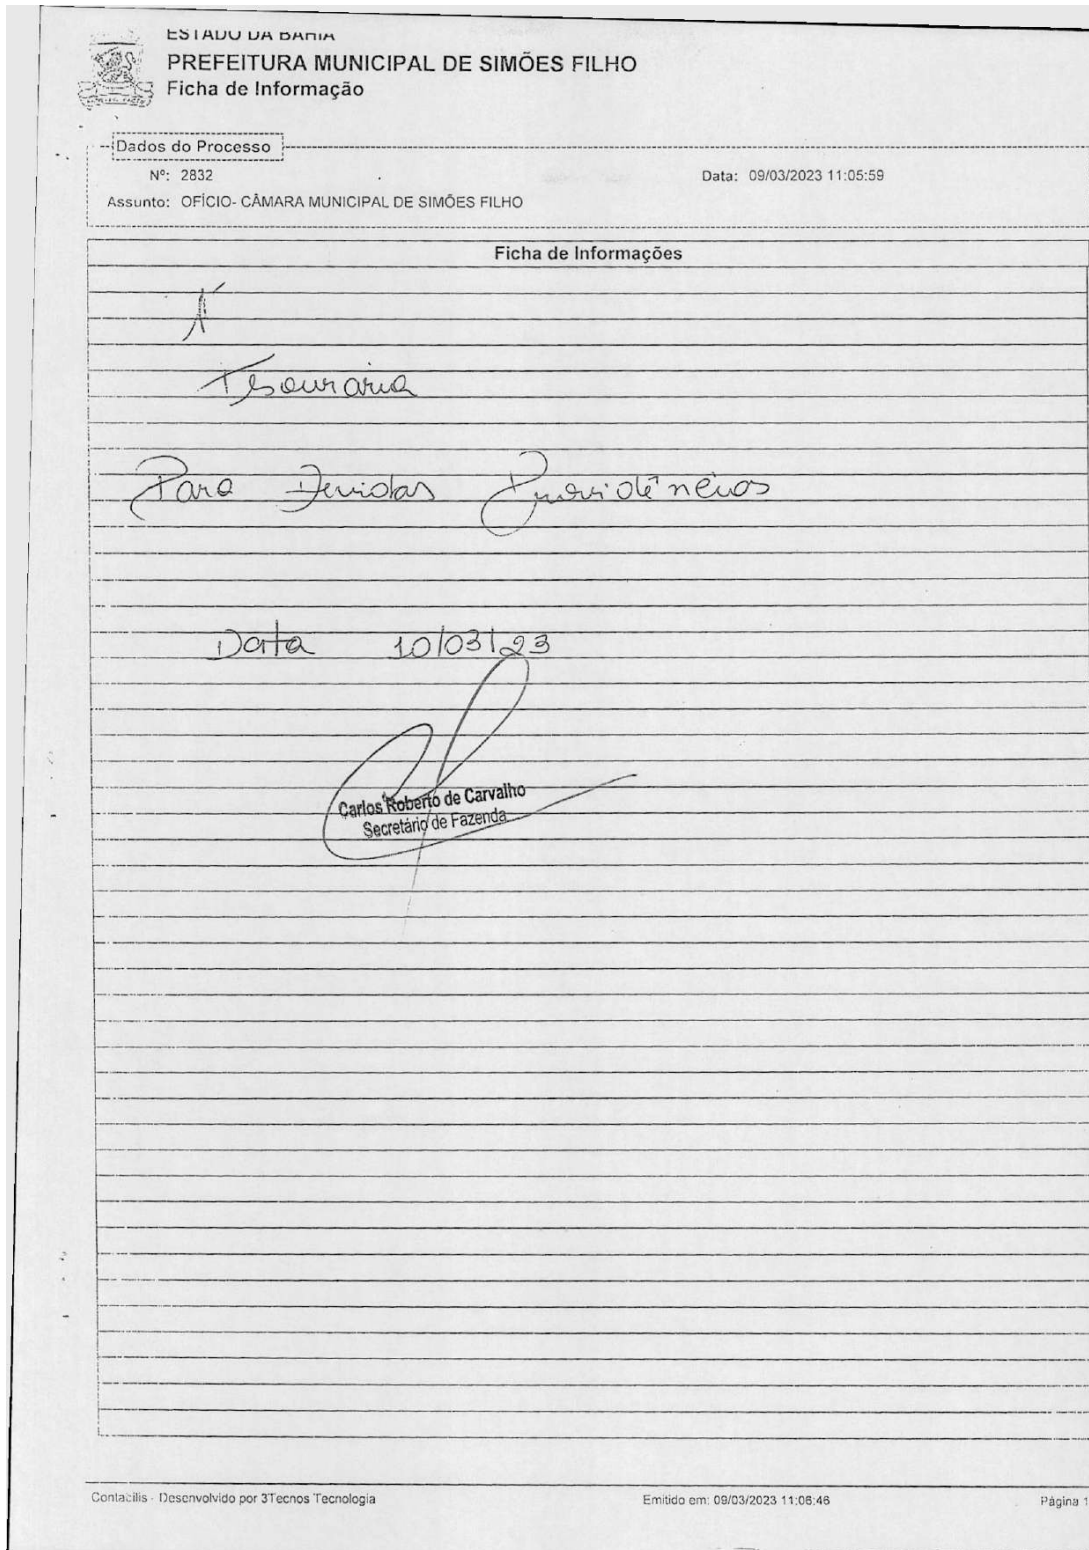 ESTADO DA BAHIA
PREFEITURA MUNICIPAL DE SIMÕES FILHO
Ficha de Informação
Dados do Processo
Nº: 2832 Data: 09/03/2023 11:05:59
Assunto: OFÍCIO- CÂMARA MUNICIPAL DE SIMÕES FILHO
Ficha de Informações
À
Tesouraria
Para Devidas Providências
Data 10/03/23
Carlos Roberto de Carvalho
Secretário de Fazenda
Contabilis - Desenvolvido por 3Tecnos Tecnologia Emitido em: 09/03/2023 11:06:46 Página 1